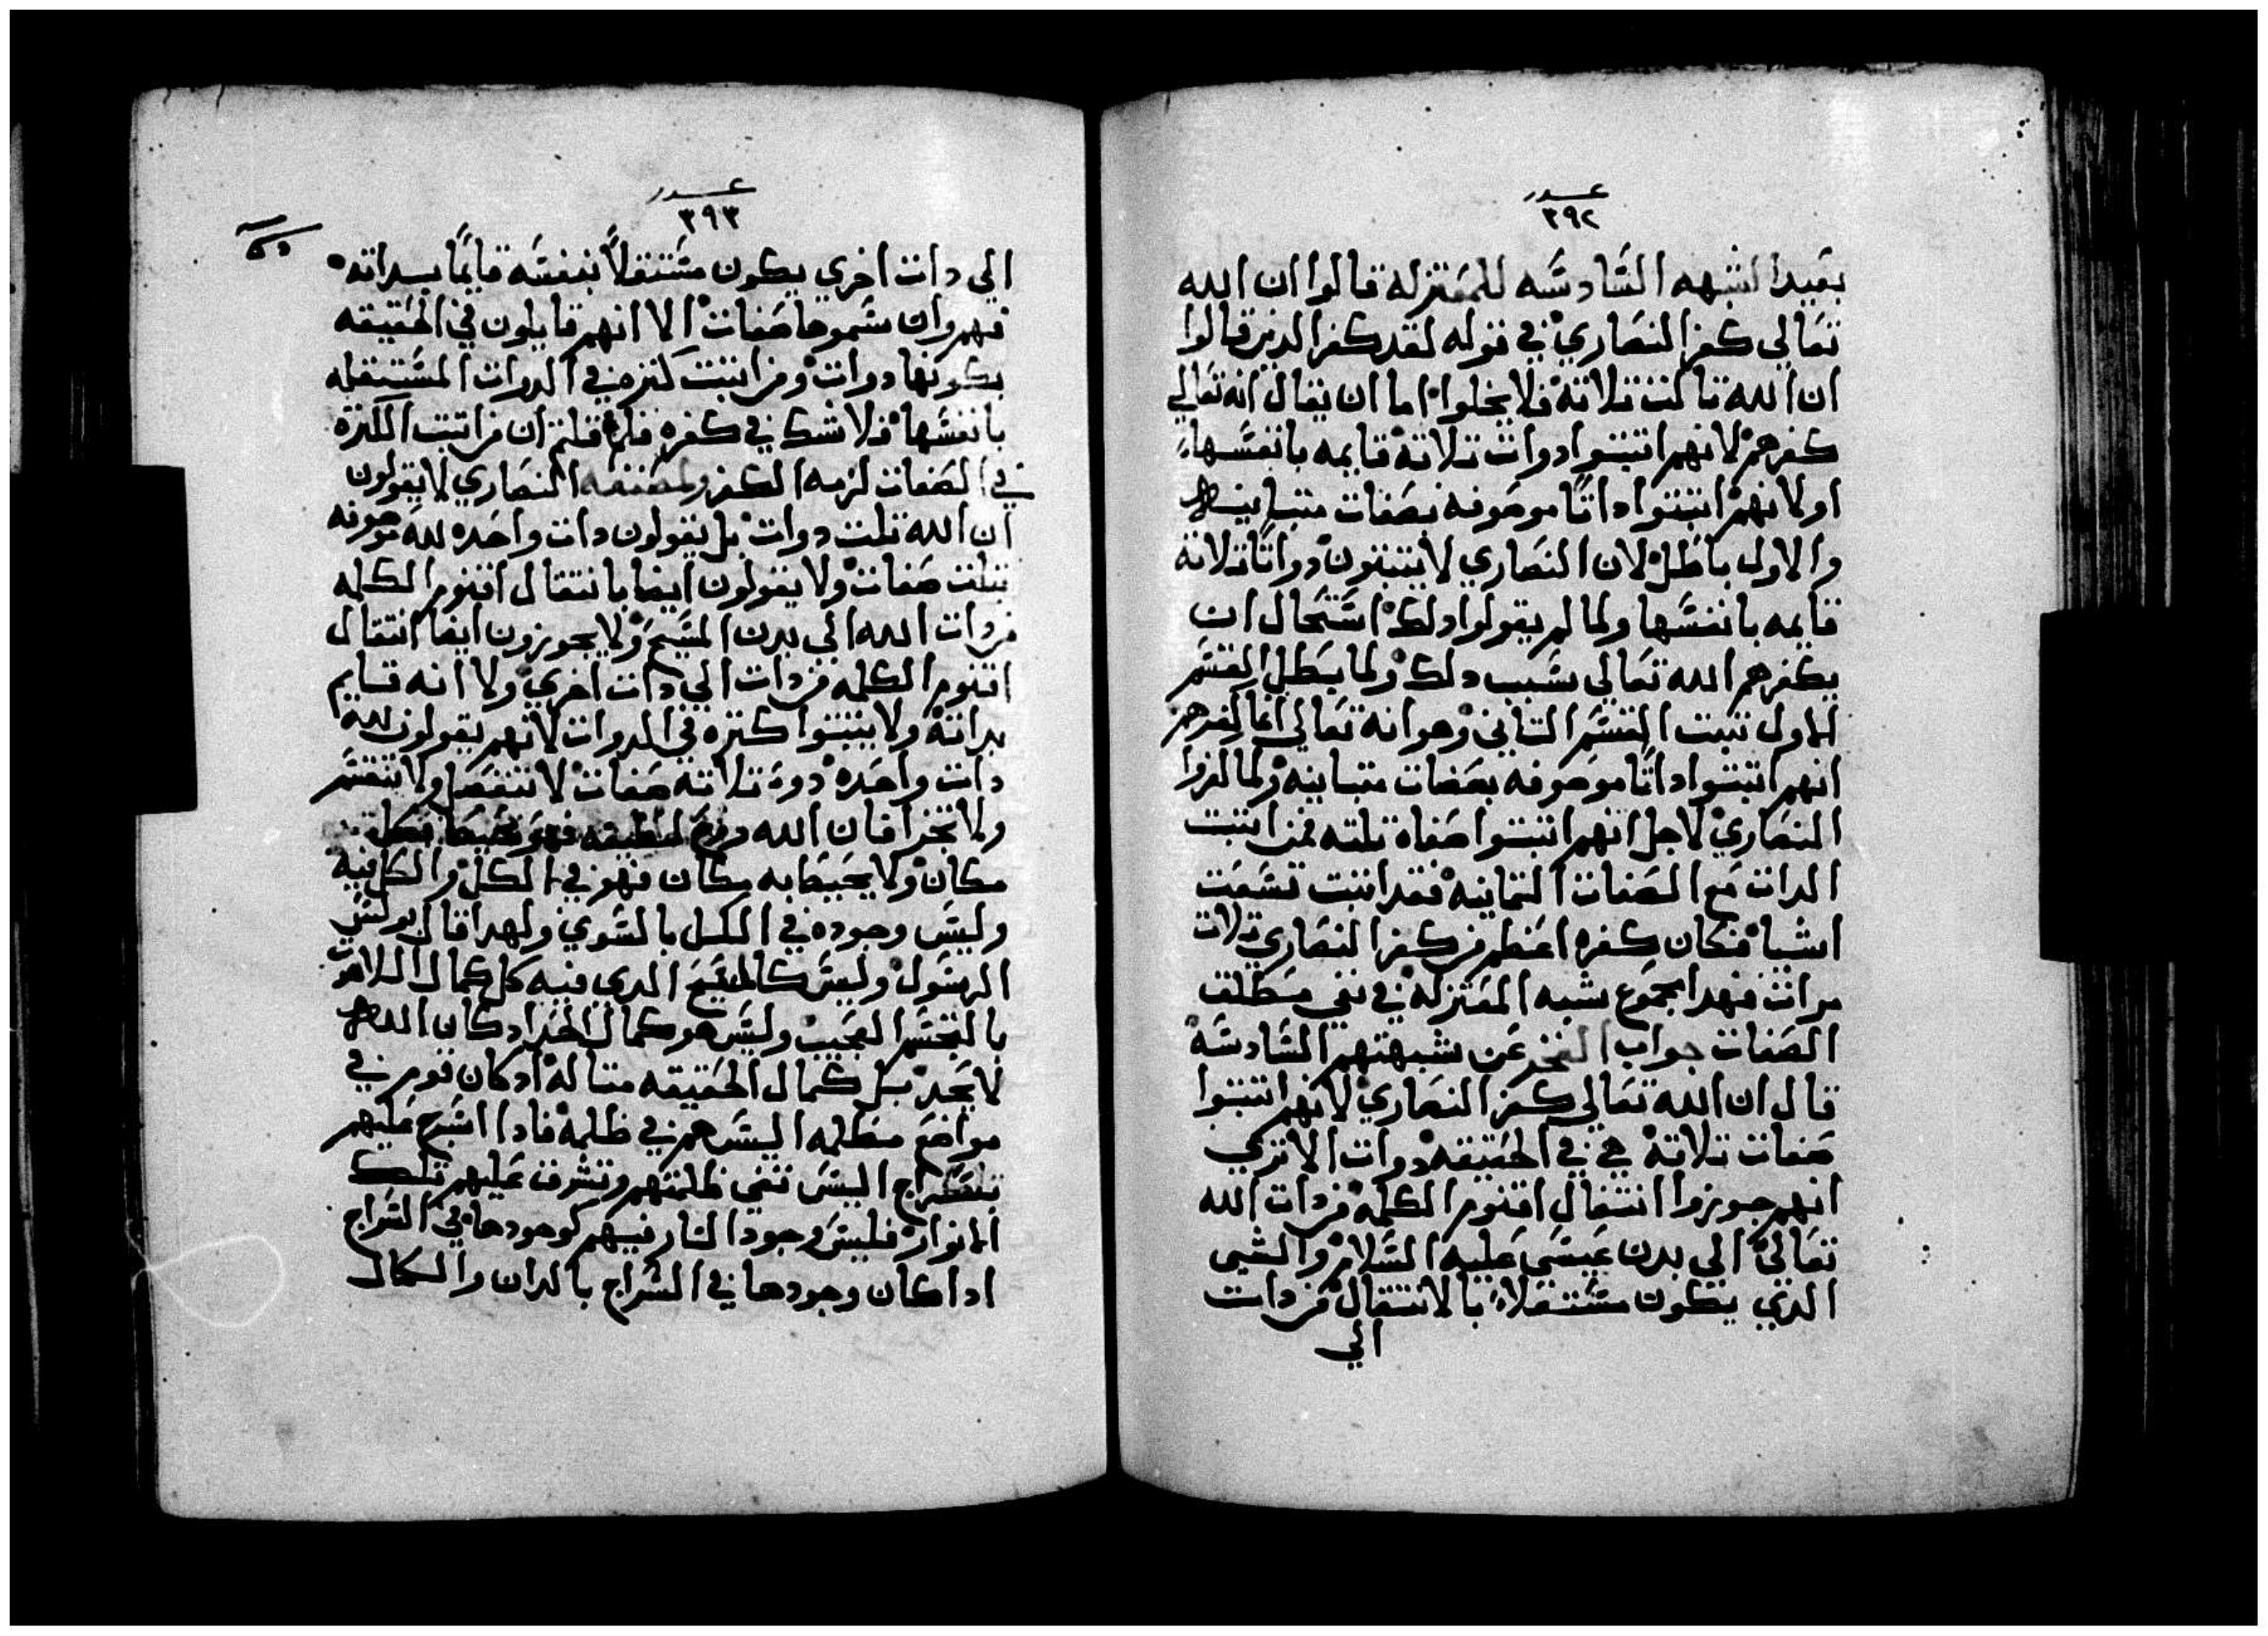 عدد
٣٩٢
بعيدا الشبهه السادسه للمعتزله قالوا ان الله
تعالي كفر النصاري في قوله لقد كفر الدين قالوا
ان الله تالت تلاته فلا يخلوا اما ان يقال انه تعالي
كفرهم لانهم اتبتوا دوات تلاته قايمه بانفسها
او لانهم اتبتوا داتًا موصوفه بصفات متباينه
والاول باطل لان النصاري لا يتبتون دواتًا تلاته
قايمه بانفسها ولما لم يقولوا دلك استحال ان
يكفرهم الله تعالي بسبب دلك ولما بطل القسم
الاول تبت القسم التاني وهو انه تعالي انما كفرهم
انهم اتبتوا داتًا موصوفه بصفات متباينه ولما لزوا
النصاري لاجل انهم اتبتوا صفاة تلته فمن اتبت
الدات مع الصفات التمانيه فقد اتبت تسعت
اشيا فكان كفره اعظم من كفر النصاري تلات
مرات فهدا مجموع شبه المعتزله في نفي مطلق
الصفات جواب الفخر عن شبهتهم السادسه
قال ان الله تعالي كفر النصاري لانهم اتبتوا
صفات تلاته هي في الحقيقه دوات الا تري
انهم جوزوا انتقال اقنوم الكلمه من دات الله
تعالي الي بدن عيسي عليه السلام والشي
الدي يكون مستقلاً بالانتقال من دات
الي
عدد
٣٩٣
الي دات اخري يكون مستقلاً بنفسه قايمًا بداته
فهم وان سموها صفات الا انهم قايلون في الحقيقه
بكونها دوات ومن اتبت كتره في الدوات المستقله
بانفسها فلا شك في كفره فلم قلتم ان من اتبت الكتره
في الصفات لزمه الكفر ولمصنفه النصاري لا يقولون
ان الله تلت دوات بل يقولون دات واحده لله موصوفه
بتلت صفات ولا يقولون ايضا بانتقال اقنوم الكلمه
من دات الله الي بدن المسيح ولا يجوزون ايضا انتقال
اقنوم الكلمه من دات الي دات اخري ولا انه قايم
بداته ولا يتبتوا كتره في الدوات لانهم يقولون لله
دات واحده دوة تلاته صفات لا تنفصل ولا تنقسم
ولا تتجزا فان الله روح لطيفه فهو محيط بكل
مكان ولا يحيط به مكان فهو في الكل والكل فيه
وليس وجوده في الكل بالسوي ولهدا قال بولس
الرسول وليس كالمسيح الدي فيه كل كمال اللاهوت
بالتجسم العجيب وليس هو كمال الحد اد كان الله
لا يحد بل كمال الحقيقه متاله اد كان قوم في
مواضع مظلمه اليس هم في ظلمه فادا اشرج عليهم
بالسراج اليس تنفي ظلمتهم وتشرق عليهم تلك
الانوار فليس وجود النار فيهم كوجودها في السراج
ادا كان وجودها في السراج بالدات والكمال